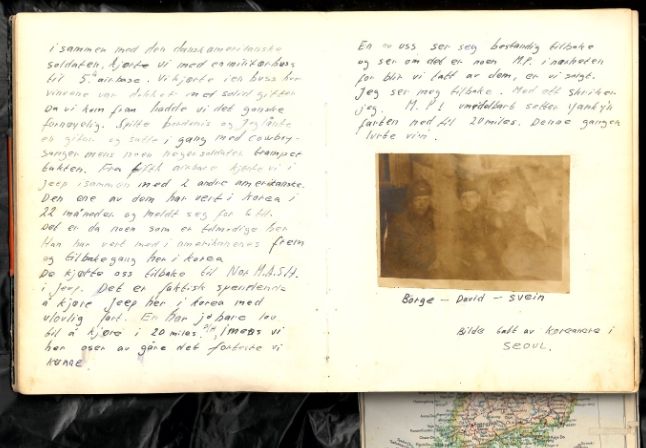 i sammen med den danskamerikanske
soldaten, kjørte vi med en militærbuss
til 5th airbase. Vi kjørte i en buss hvor
vinduene var dekket med solid gitter
Da vi kom fram hadde vi det ganske
fornøyelig. Spilte bordtennis og jeg lånte
en gitar og satte i gang med cowboy-
sanger mens noen negersoldater trampet
takten. Fra fifth airbase kjørte vi i
jeep isammen med 2 andre amerikanske.
Den ene av dem har vert i Korea i
22 måneder og meldt seg for 6 til.
Det er da noen som er tålmodige her
Han har vert med i amerikanernes frem
og tilbakegang her i Korea
De kjørte oss tilbake til Nor M.A.S.H.
i jeep. Det er faktisk spennende
å kjøre jeep her i Korea med
ulovlig fart. En har jo bare lov
til å kjøre i 20 miles. Imens vi
her oser av gåre det forteste vi
kunne.
En av oss ser seg bestandig tilbake
og ser om det er noen M.P. i nærheten
for blir vi tatt av dem, er vi solgt.
Jeg ser meg tilbake. Med ett skriker
jeg. M.P! umiddelbart setter yankyn
farten ned til 20 miles. Denne gangen
lurte vi'n.
Børge - David - Svein
Bilde tatt av koreanere i
SEOUL.